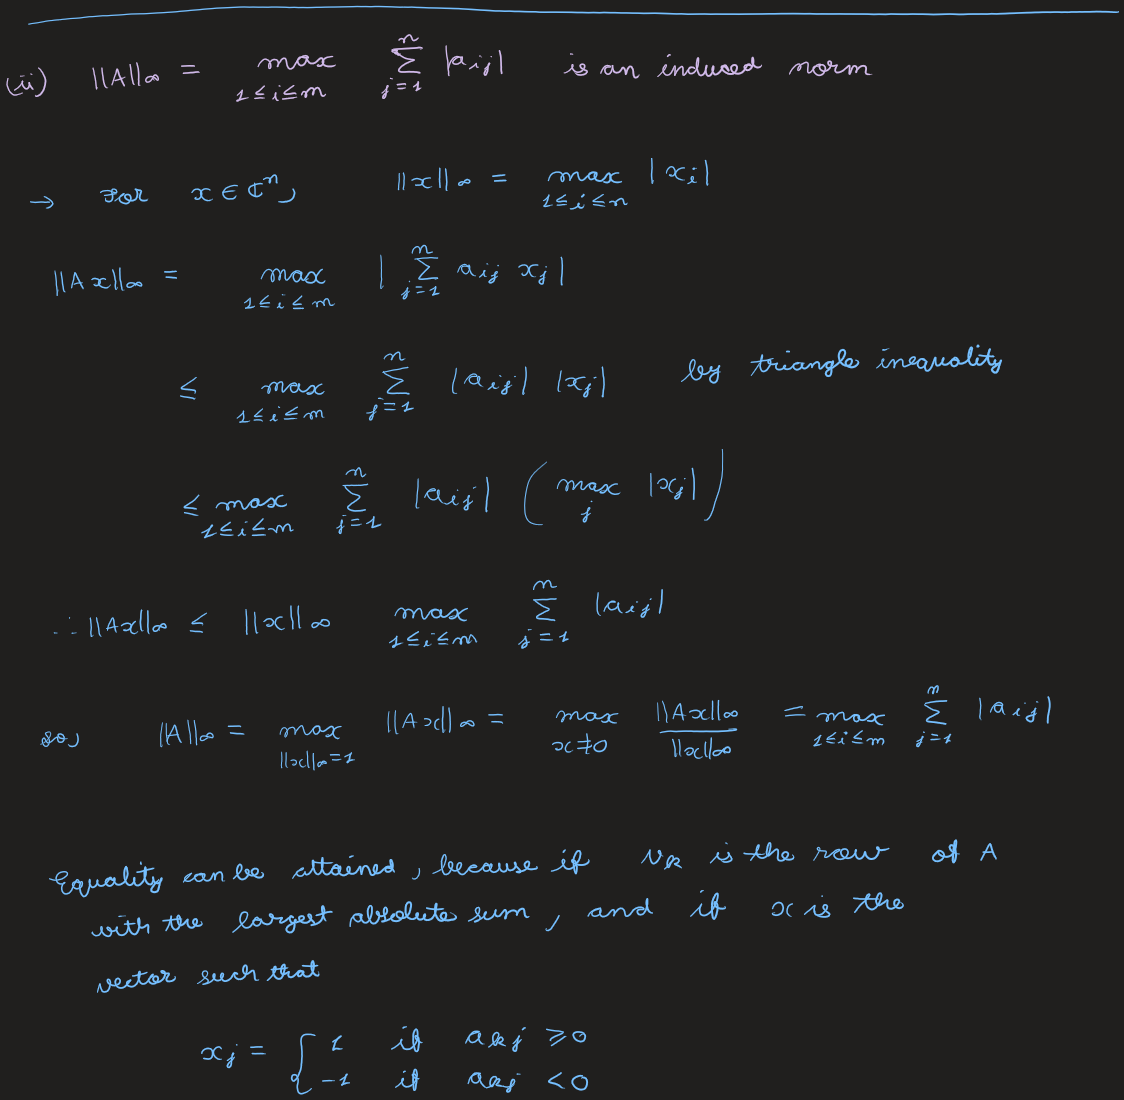 (ii) ||A||∞ = max 1≤i≤m ∑ j=1 n |aij| is an induced norm
→ For x ∈ ℂⁿ, ||x||∞ = max 1≤i≤n |xi|
||Ax||∞ = max 1≤i≤m | ∑ j=1 n aij xj |
≤ max 1≤i≤m ∑ j=1 n |aij| |xj| by triangle inequality
≤ max 1≤i≤m ∑ j=1 n |aij| ( max j |xj| )
∴ ||Ax||∞ ≤ ||x||∞ max 1≤i≤m ∑ j=1 n |aij|
so, ||A||∞ = max ||x||∞=1 ||Ax||∞ = max x≠0 ||Ax||∞ / ||x||∞ = max 1≤i≤m ∑ j=1 n |aij|
Equality can be attained, because if vk is the row of A
with the largest absolute sum, and if x is the
vector such that
xj = { 1 if akj ≥0
-1 if akj <0